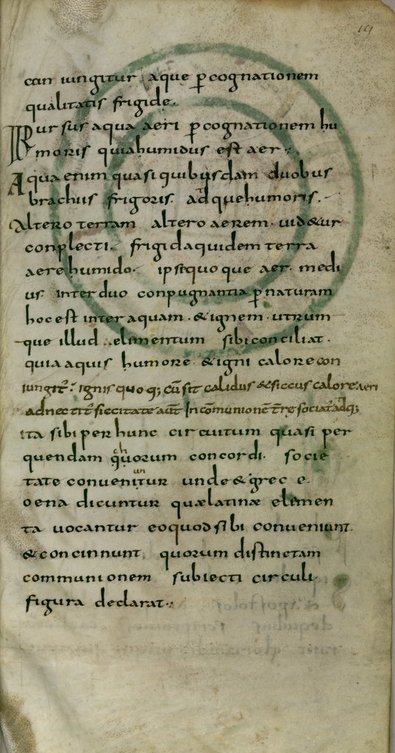 con iungitur aque ꝑ cognationem
qualitatis frigide.
Rursus aqua aeri ꝑ cognationem hu
moris quia humidus est aer.
Aqua enim quasi quibusdam duobus
brachiis frigoris adque humoris.
Altero terram altero aerem uid&ur
conplecti. frigida quidem terra
aere humido. ipse quoque aer medi
us inter duo conpugnantia ꝑ naturam
hoc est inter aquam & ignem utrum
que illud elimentum sibi conciliat.
quia aquis humore & igni calore con
iungit᷑. ignis quoq; cū sit calidus & siccus calore aeri
adnectit᷑ siccitate aūt in comunionē terrę sociat᷑ adq;
ita sibi per hunc circuitum quasi per
quendam chorum concordi socie
tate conveniunt unde & grec e
oena dicuntur quælatinæ elemen
ta vocantur eo quod sibi conveniunt
& concinnunt quorum distinctam
communionem subiecti circuli
figura declarat.